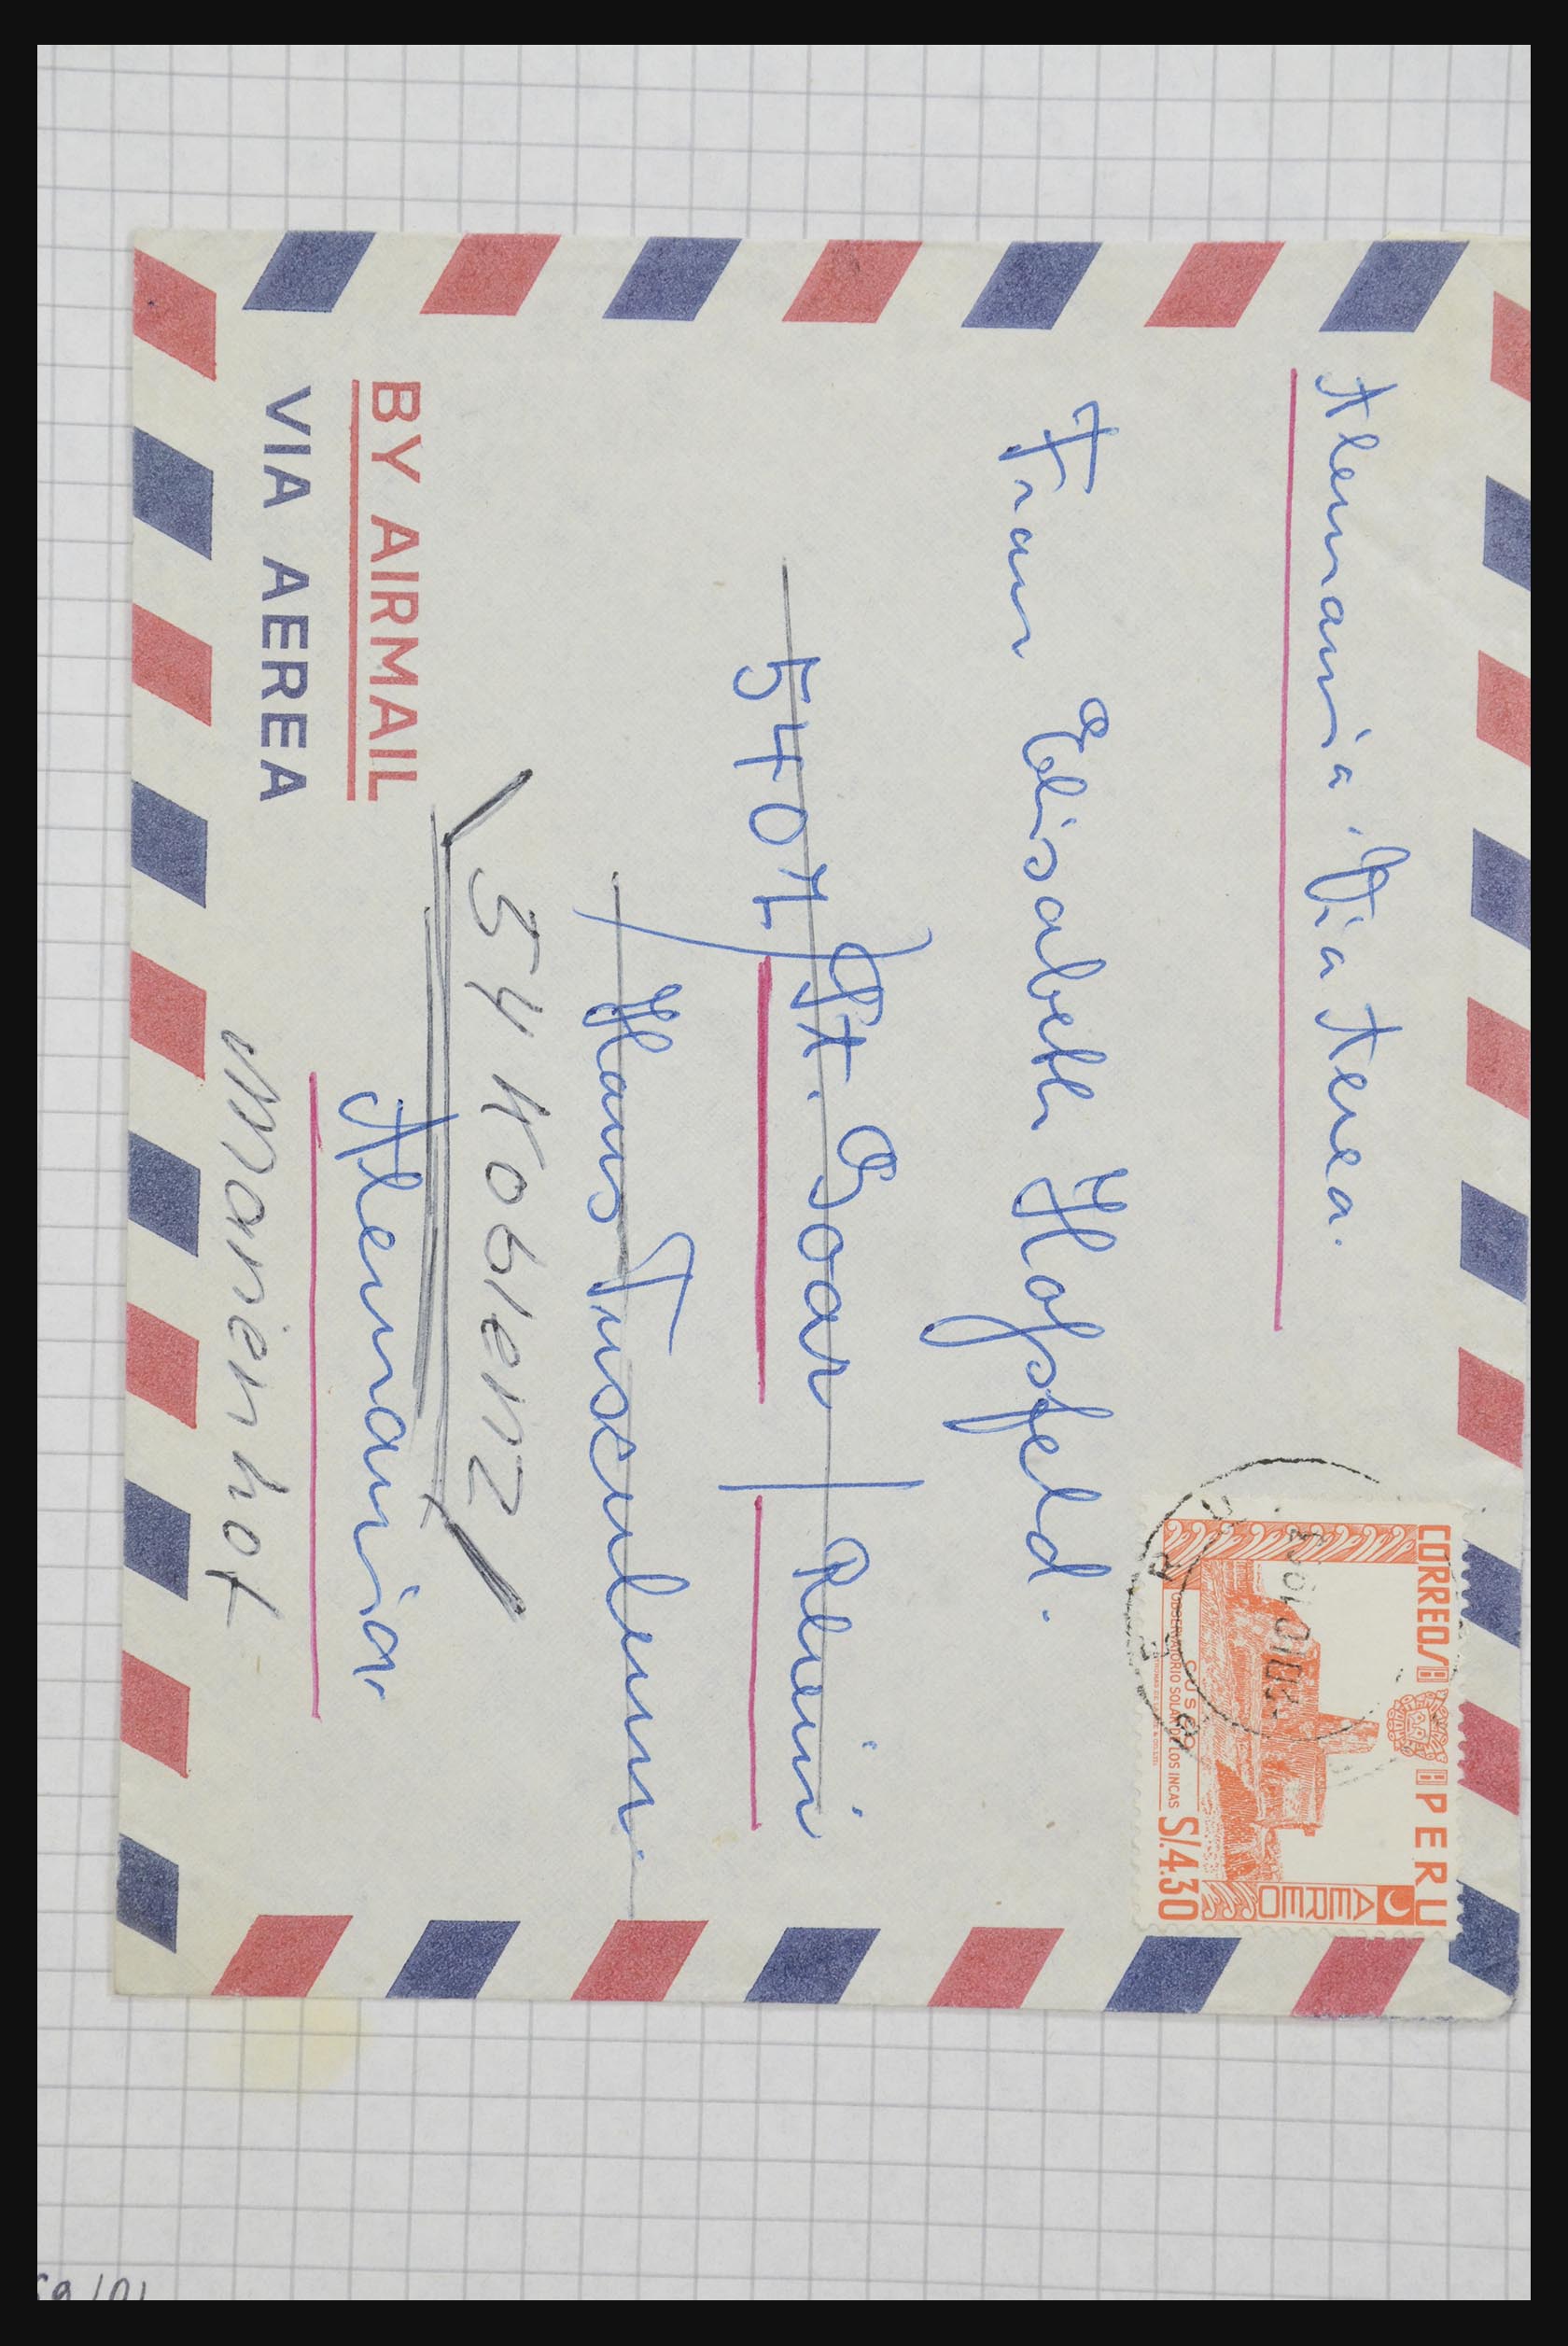 Alemania. Via Aerea.
CORREOS
PERU
AEREO
CUSCO
OBSERVATORIO SOLAR DE LOS INCAS
S/.4.30
Frau Elisabeth Hofsfeld.
5407 St. Goar / Rhein
Haus Tusculum.
54 Koblenz
BY AIRMAIL
Alemania.
VIA AEREA
Marienhof